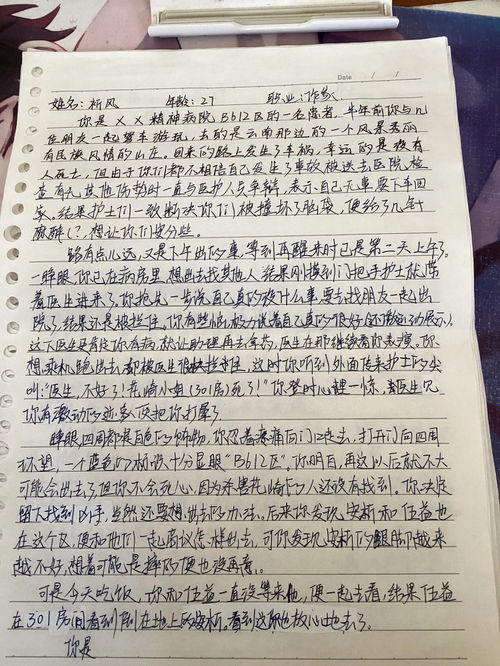 Date / /
姓名:祈风 年龄:27 职业:作家
你是××精神病院B612区的一名患者,半年前你与几
位朋友一起驾车游玩,去的是云南那边的一个风景秀丽
有民族风情的山庄。回来的路上发生了车祸,幸运的是没有
人死亡,但由于你们都不相信自己发生了事故被送去医院检
查有无其他伤势时一直与医护人员争辩,表示自己无事要下车回
家。结果护士们一致断决你们被撞坏了脑袋,便给了几针
麻醉(?,想让你们安分些。
路有点儿远,又是下午出的事,等到再醒来时已是第二天上午了。
一睁眼你已在病房里,想出去找其他人,结果刚摸到门把手护士就带
着医生进来了,你抢先一步说自己真的没什么事,要去找朋友一起出
院了,结果还是被拦住。你有些慌,极力说着自己真的很好(还做运动展示).
这下医生是肯定你有病,就让助理再去拿药,医生在那继续看你表演。你
想乘机跑出去,都被医生拦住,这时你听到外面传来护士的尖
叫:"医生,不好了!花崎小姐(301房)死了!"你登时心裡一惊,医生见
你有激动的迹象便把你打晕了
睁眼四周都是白色的饰物,你忍着疼痛向门口走去,打开门向四周
环望,一个蓝色的标吸十分显眼"B612区",你明白,再这以后就不大
可能会出去了但你不会死心,因为杀害花崎的人还没有找到。你决定
留下找到凶手,当然还要想出去的办法。后来你发现安析和伍益也
在这个区,便和他们一起商议怎样出去,可你发现安析的腿脚越来
越不好,想着可能是摔的便也没再意。
可是今天吃饭,你和伍益一直没等来他,便一起去看,结果伍益
在301房间看到倒在地上的安析。看到这你也放心地去了。
你是